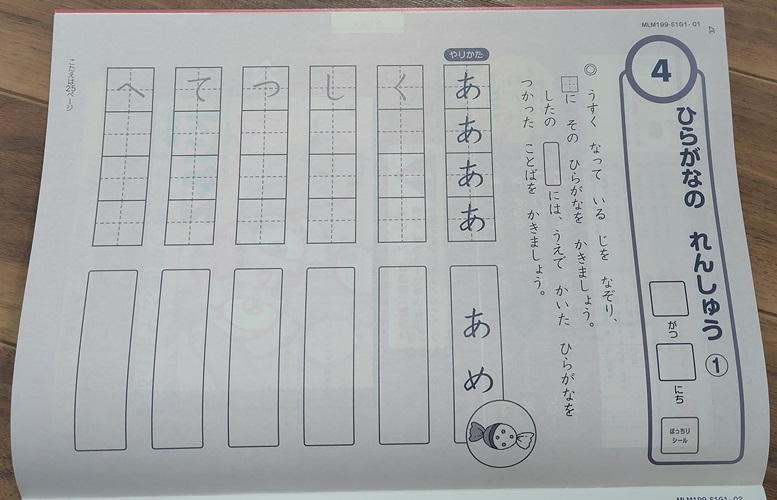 MLM199-S1G1- 01
4 ひらがなの れんしゅう ①
がつ
にち
ばっちり
シール
◎ うすく なって いる じを なぞり、
に その ひらがなを かきましょう。
したの には、うえで かいた ひらがなを
つかった ことばを かきましょう。
やりかた
ああああ
あめ
く
し
つ
て
へ
こたえは25ページ
MLM199-S1G1- 02